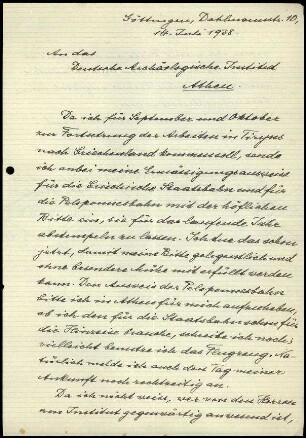 Göttingen, Dahlmannstr. 10,
14. Juli 1938.
An das
Deutsche Archäologische Institut
Athen.
Da ich für September und Oktober
zur Fortsetzung der Arbeiten in Tiryns
nach Griechenland kommen soll, sende
ich anbei meine Ermässigungsausweise
für die Griechische Staatsbahn und für
die Peloponnesbahn mit der höflichen
Bitte ein, sie für das laufende Jahr
abstempeln zu lassen. Ich tue das schon
jetzt, damit meine Bitte gelegentlich und
ohne besondere Mühe mit erfüllt werden
kann. Den Ausweis der Peloponnesbahn
bitte ich in Athen für mich aufzuheben,
ob ich den für die Staatsbahn schon für
die Hinreise brauche, schreibe ich noch;
vielleicht benutze ich das Flugzeug. Na-
türlich melde ich auch den Tag meiner
Ankunft noch rechtzeitig an.
Da ich nicht weiss, wer von den Herren
am Institut gegenwärtig anwesend ist,